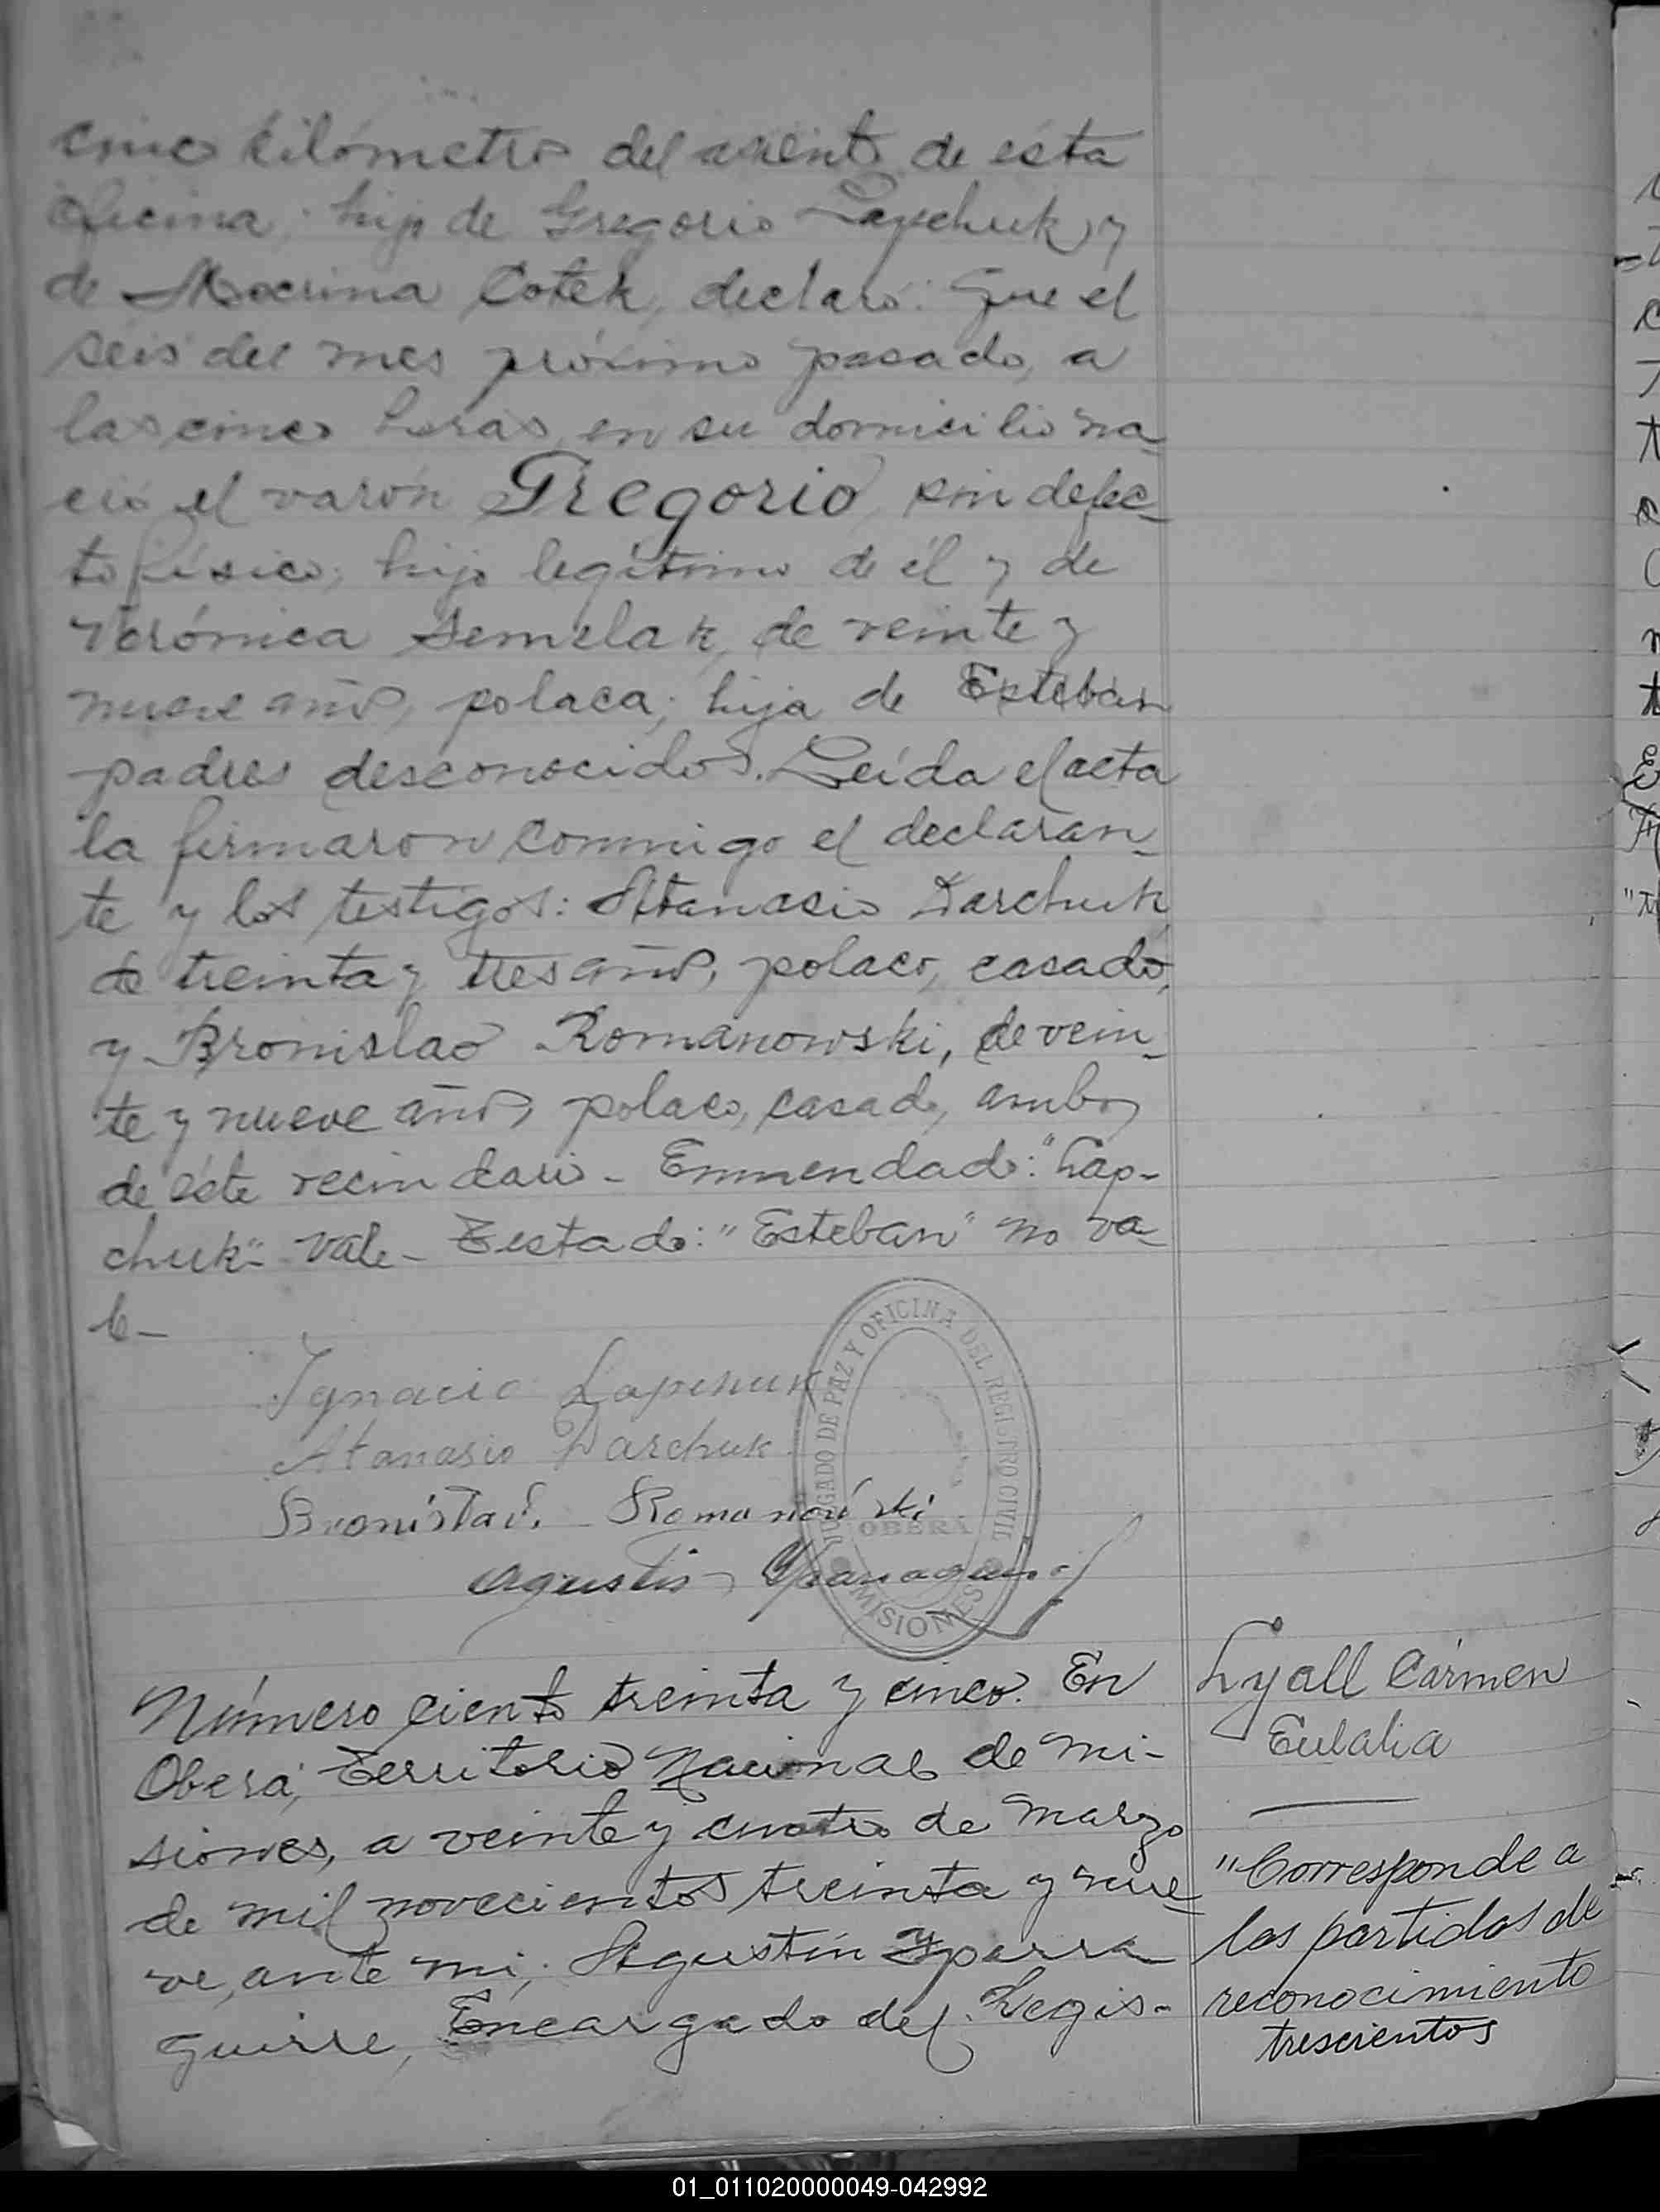 cinco kilómetros del asiento de esta
oficina; hijo de Gregorio Lapchuk y
de Mocrina Cotek, declaró: Que el
seis del mes próximo pasado, a
las cinco horas, en su domicilio na-
ció el varón Gregorio, sin defec-
to físico; hijo legítimo de él y de
Verónica Semelak, de veinte y
nueve años, polaca; hija de Esteban
padres desconocidos. Leída el acta
la firmaron conmigo el declaran-
te y los testigos: Atanasio Darchuk
de treinta y tres años, polaco, casado,
y Bronislao Romanowski, de vein-
te y nueve años, polaco, casado, ambos
de éste vecindario - Enmendado: "Lap-
chuk" - Vale - Testado: "Esteban" no va-
le -
Ignacio Lapchuk
Atanasio Darchuk
Romanowski
Agustin
JUZGADO DE PAZ Y OFICINA DEL REGISTRO CIVIL
OBERÁ
MISIONES
Número ciento treinta y cinco. En
Oberá, Territorio Nacional de Mi-
siones, a veinte y cuatro de Marzo
de mil novecientos treinta y nue-
ve, ante mí, Agustín Yparra-
guirre, Encargado del Regis-
Lyall Cármen
Eulalia
"Corresponde a
las partidas de
reconocimiento
trescientos
01_011020000049-042992